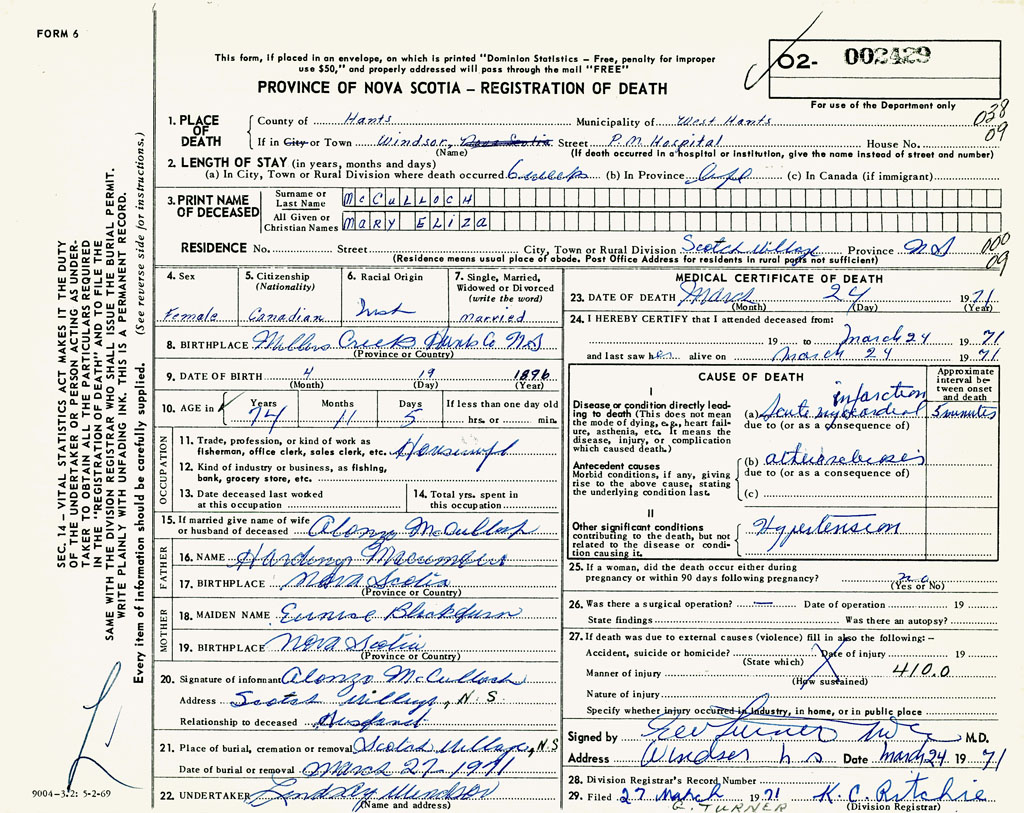 FORM 6
This form, if placed in an envelope, on which is printed "Dominion Statistics – Free, penalty for improper
use $50," and properly addressed will pass through the mail "FREE"
PROVINCE OF NOVA SCOTIA – REGISTRATION OF DEATH
02- 002429
For use of the Department only
038
09
1. PLACE OF DEATH
County of Hants Municipality of West Hants
If in City or Town Windsor, Nova Scotia Street P.M. Hospital House No.
(Name) (If death occurred in a hospital or institution, give the name instead of street and number)
2. LENGTH OF STAY (in years, months and days)
(a) In City, Town or Rural Division where death occurred 6 weeks (b) In Province (c) In Canada (if immigrant)
3. PRINT NAME OF DECEASED
Surname or Last Name McCULLOCH
All Given or Christian Names MARY ELIZA
RESIDENCE No. Street City, Town or Rural Division Scotch Village Province NS
(Residence means usual place of abode. Post Office Address for residents in rural parts not sufficient)
000
09
4. Sex
Female
5. Citizenship
(Nationality)
Canadian
6. Racial Origin
7. Single, Married,
Widowed or Divorced
(write the word)
married
8. BIRTHPLACE Millers Creek Hants Co NS
(Province or Country)
9. DATE OF BIRTH 4 19 1896
(Month) (Day) (Year)
10. AGE in Years Months Days If less than one day old
74 11 5 hrs. or min.
OCCUPATION
11. Trade, profession, or kind of work as
fisherman, office clerk, sales clerk, etc. Housewife
12. Kind of industry or business, as fishing,
bank, grocery store, etc.
13. Date deceased last worked
at this occupation
14. Total yrs. spent in
this occupation
15. If married give name of wife
or husband of deceased Alonzo McCulloch
FATHER
16. NAME Harding
17. BIRTHPLACE Nova Scotia
(Province or Country)
MOTHER
18. MAIDEN NAME Eunice Blackburn
19. BIRTHPLACE Nova Scotia
(Province or Country)
20. Signature of informant Alonzo McCulloch
Address Scotch Village, N.S
Relationship to deceased Husband
21. Place of burial, cremation or removal Scotch Village, N.S
Date of burial or removal March 27 - 1971
22. UNDERTAKER Lindsay Windsor
(Name and address)
MEDICAL CERTIFICATE OF DEATH
23. DATE OF DEATH March 24 1971
(Month) (Day) (Year)
24. I HEREBY CERTIFY that I attended deceased from:
19 to March 24 1971
and last saw her alive on March 24 1971
CAUSE OF DEATH
Approximate
interval be-
tween onset
and death
I
Disease or condition directly lead-
ing to death (This does not mean
the mode of dying, e.g., heart fail-
ure, asthenia, etc. It means the
disease, injury, or complication
which caused death.)
(a) Acute myocardial infarction 5 minutes
due to (or as a consequence of)
Antecedent causes
Morbid conditions, if any, giving
rise to the above cause, stating
the underlying condition last.
(b)
due to (or as a consequence of)
(c)
II
Other significant conditions
contributing to the death, but not
related to the disease or condi-
tion causing it.
Hypertension
25. If a woman, did the death occur either during
pregnancy or within 90 days following pregnancy? no
(Yes or No)
26. Was there a surgical operation? — Date of operation 19
State findings Was there an autopsy?
27. If death was due to external causes (violence) fill in also the following: –
Accident, suicide or homicide? Date of injury 19
(State which)
Manner of injury 410.0
(How sustained)
Nature of injury
Specify whether injury occurred in industry, in home, or in public place
Signed by M.D.
Address Windsor N S Date March 24 1971
28. Division Registrar's Record Number
29. Filed 27 March 1971 K. C. Ritchie
G. TURNER (Division Registrar)
SEC. 14 – VITAL STATISTICS ACT MAKES IT THE DUTY
OF THE UNDERTAKER OR PERSON ACTING AS UNDER-
TAKER TO OBTAIN ALL THE PARTICULARS REQUIRED
IN THE "REGISTRATION OF DEATH" AND TO FILE THE
SAME WITH THE DIVISION REGISTRAR WHO SHALL ISSUE THE BURIAL PERMIT.
WRITE PLAINLY WITH UNFADING INK. THIS IS A PERMANENT RECORD.
Every item of information should be carefully supplied. (See reverse side for instructions.)
9004-3.2: 5-2-69